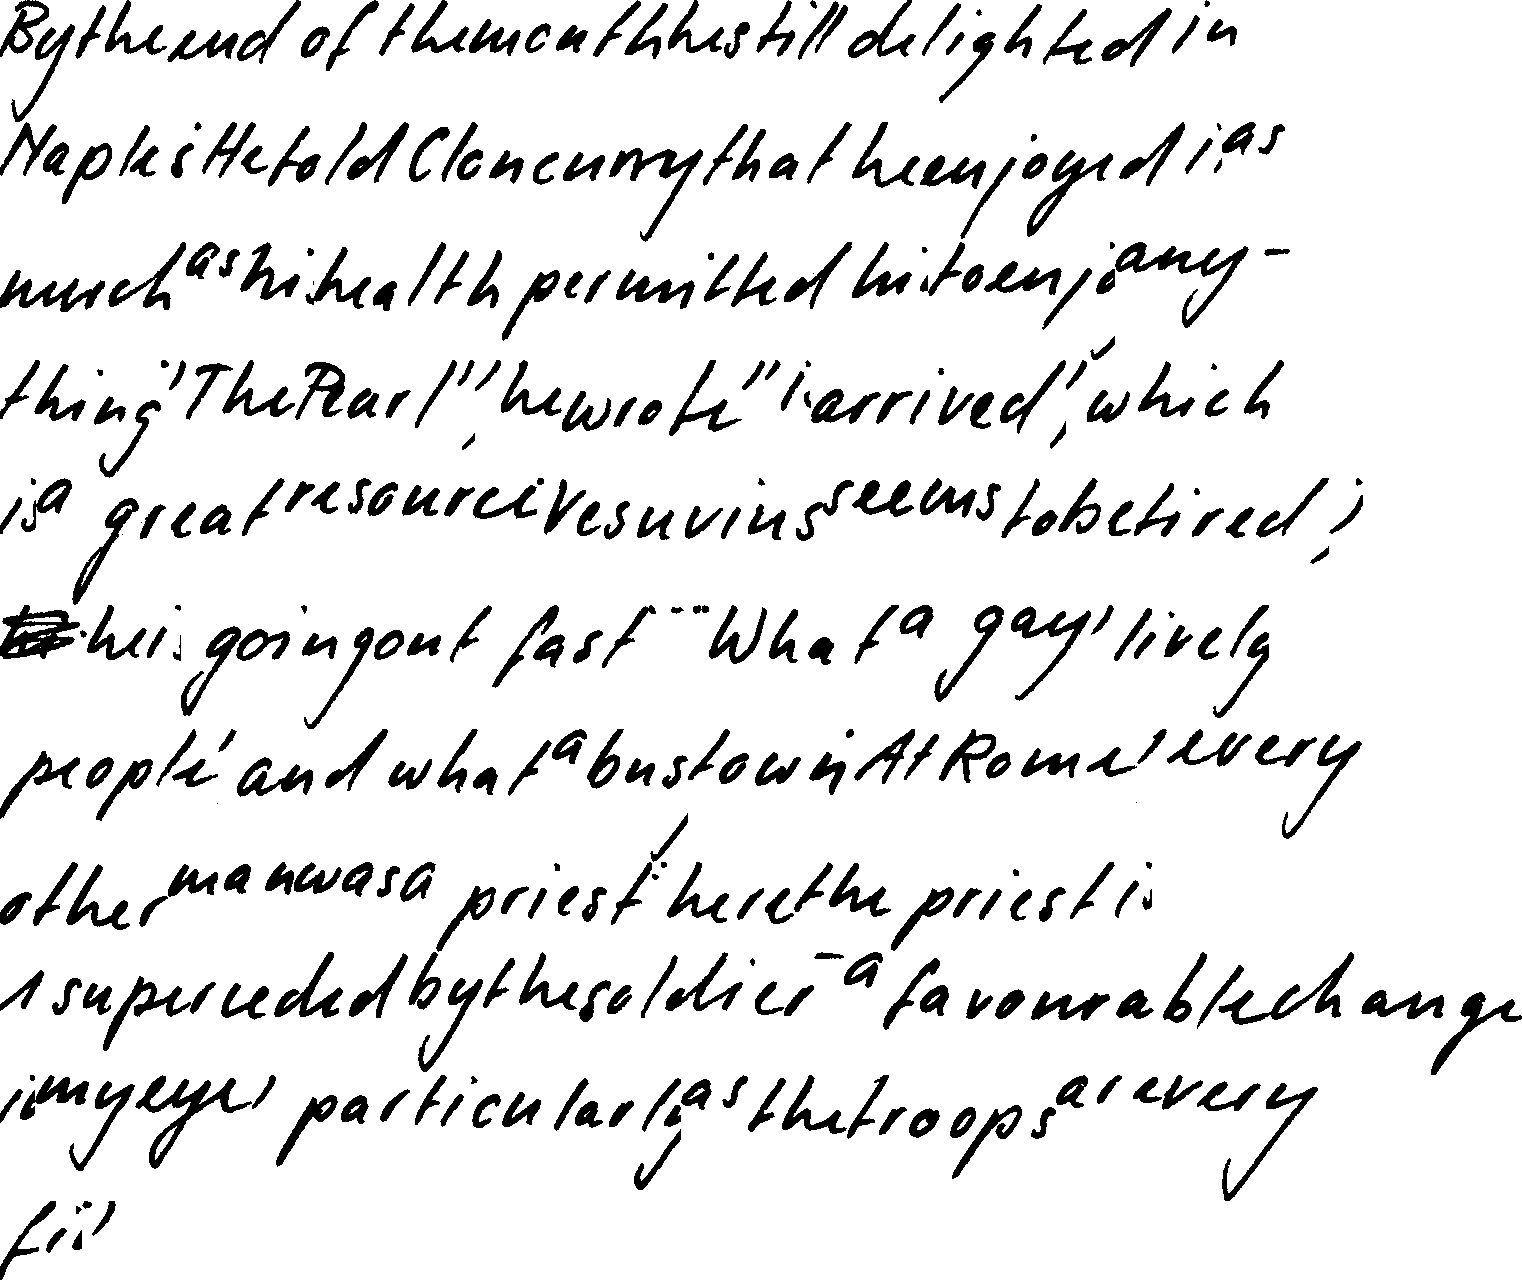 By the end of the month he still delighted in
Naples. He told Cloncurry that he enjoyed it as
much as his health permitted him to enjoy any-
thing. 'The Pearl', he wrote, 'is arrived', which
is a great resource. Vesuvius seems to be tired,
he is going out fast ... What a gay, lively
people, and what a busy town. At Rome, every
other man was a priest; here the priest is
superceded by the soldier - a favourable change
in my eyes, particularly as the troops are very
fine.'